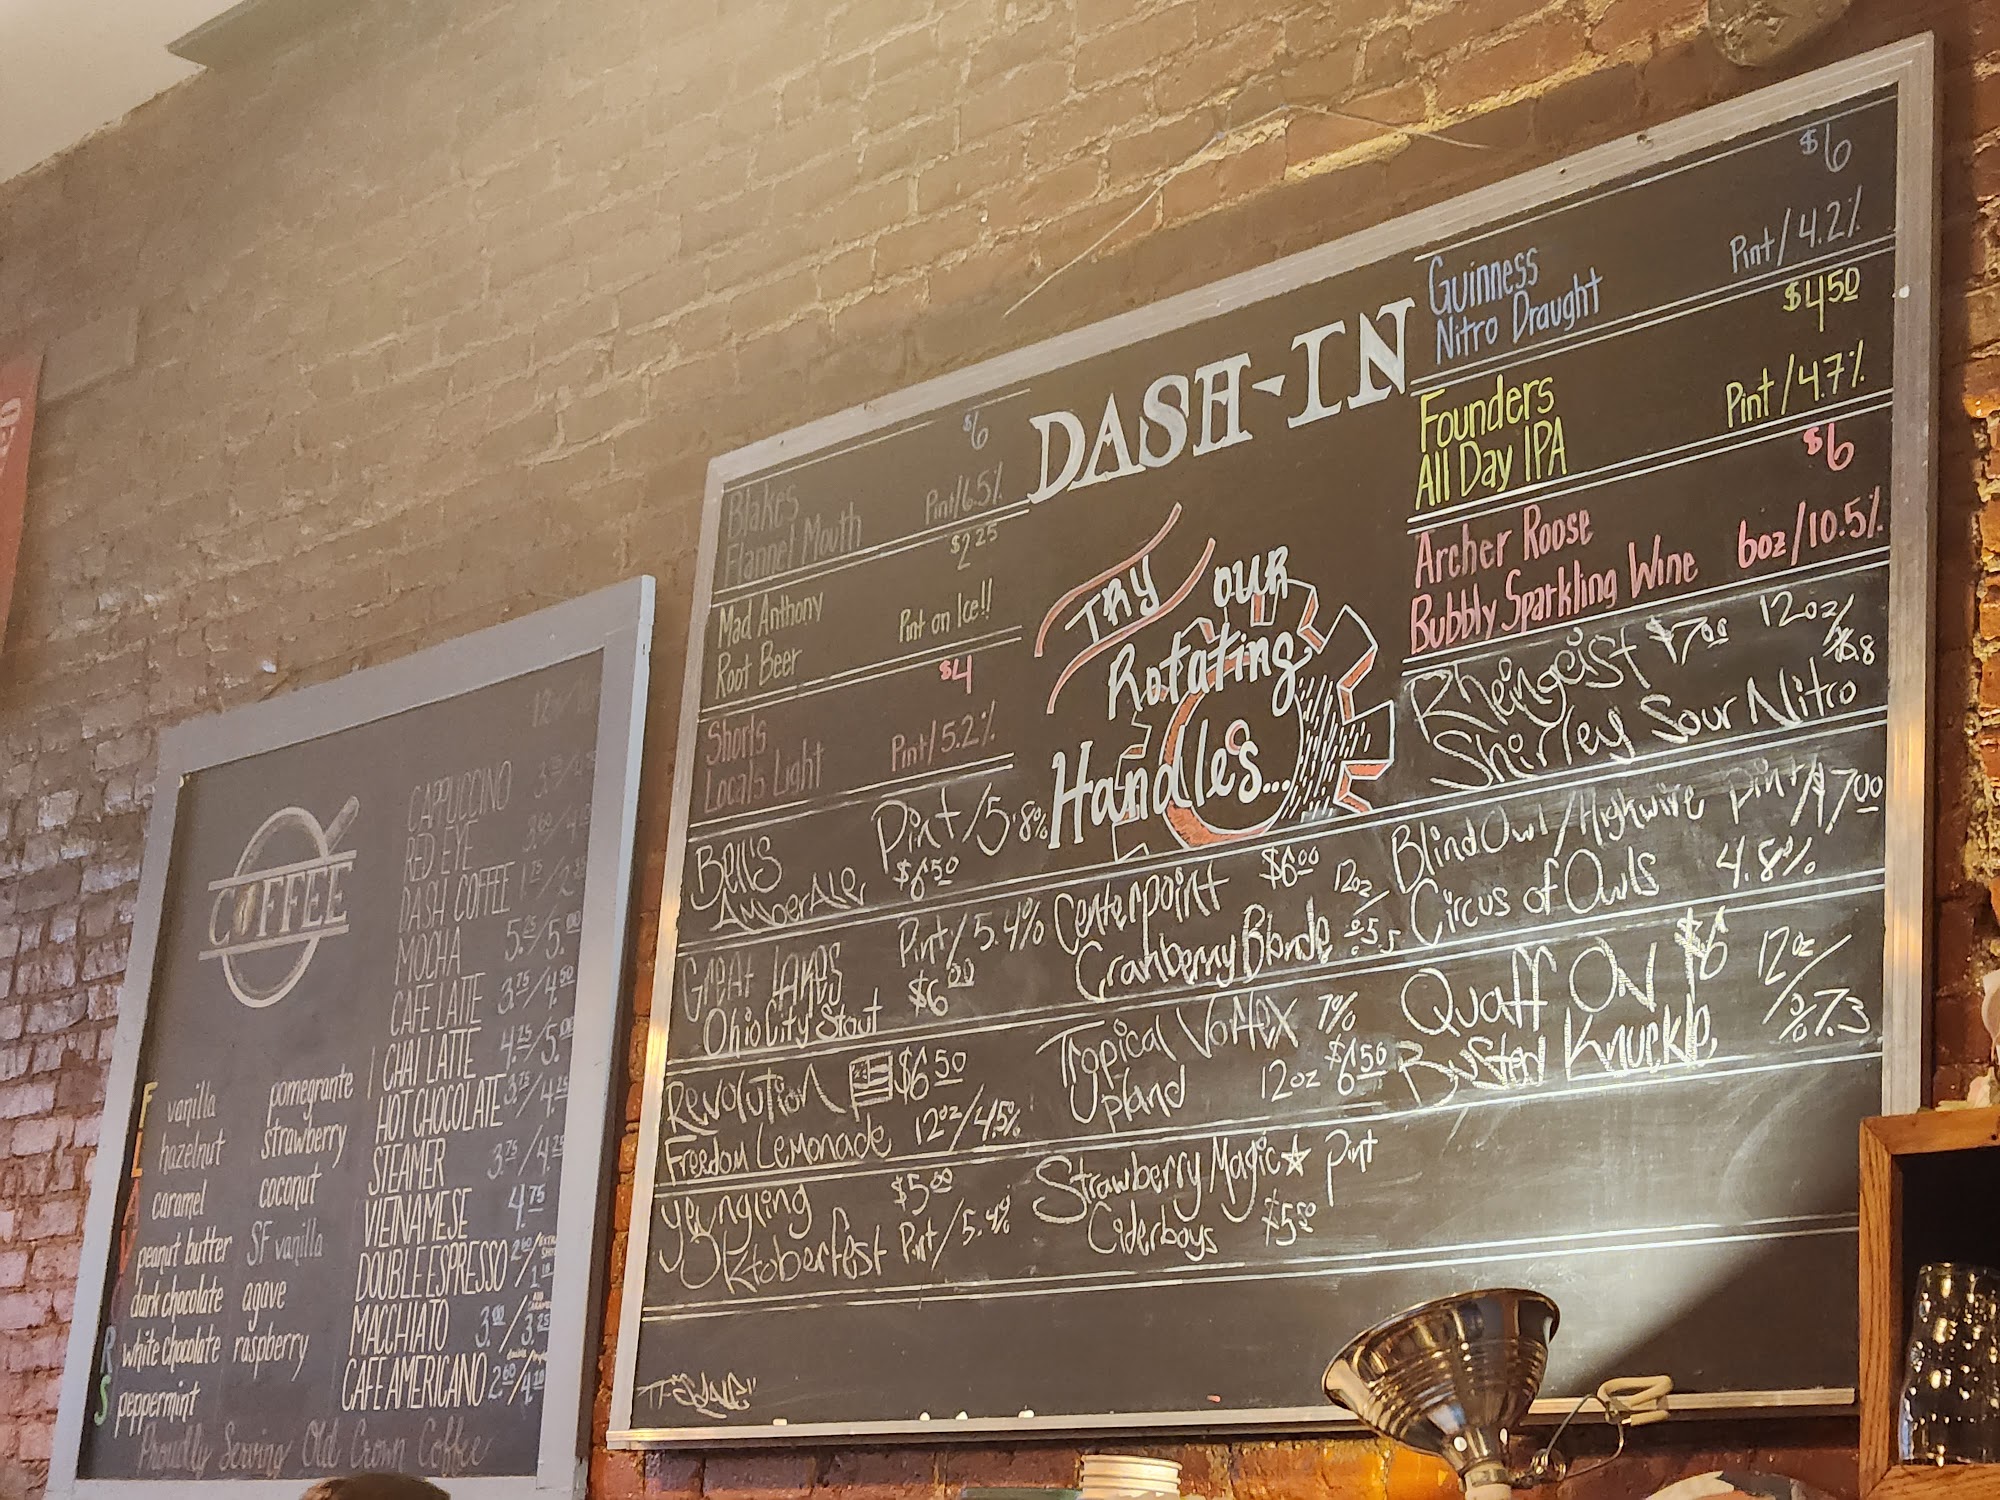 COFFEE
12oz/16
CAPPUCCINO
RED EYE
DASH COFFEE
MOCHA
CAFE LATTE 3.75/4.50
CHAI LATTE 4.25/5.00
HOT CHOCOLATE 3.75/4.25
STEAMER 3.75/4.25
VIETNAMESE 4.75
DOUBLE ESPRESSO 2.60/1.10 EXTRA SHOT
MACCHIATO 3.00/3.25
CAFE AMERICANO 2.60/4.10
FLAVORS
vanilla pomegrante
hazelnut strawberry
caramel coconut
peanut butter SF vanilla
dark chocolate agave
white chocolate raspberry
peppermint
Proudly Serving Old Crown Coffee
DASH-IN
TRY OUR
Rotating
Handles...
$6
Blakes
Flannel Mouth Pint/6.5%
$2.25
Mad Anthony
Root Beer Pint on Ice!!
$4
Shorts
Locals Light Pint/5.2%
Bell's Pint/5.8%
Amber Ale $6.50
Great Lakes Pint/5.4%
Ohio City Stout $6.00
Revolution $6.50
Freedom Lemonade 12oz/4.5%
Yeungling $5.00
Oktoberfest Pint/5.4%
Centerpoint $6.00 12oz/
Cranberry Blonde %5.5
Tropical Vortex 7%
Upland 12oz $6.50
Strawberry Magic Pint
Ciderboys $5.50
$6
Guinness
Nitro Draught Pint/4.2%
$4.50
Founders
All Day IPA Pint/4.7%
$6
Archer Roose
Bubbly Sparkling Wine 6oz/10.5%
Rheingeist $7.00 12oz/
Shirley Sour Nitro %6.8
Blind Owl/Highwire Pint/$7.00
Circus of Owls 4.8%
Quaff ON $6 12oz/
Busted Knuckle %7.3